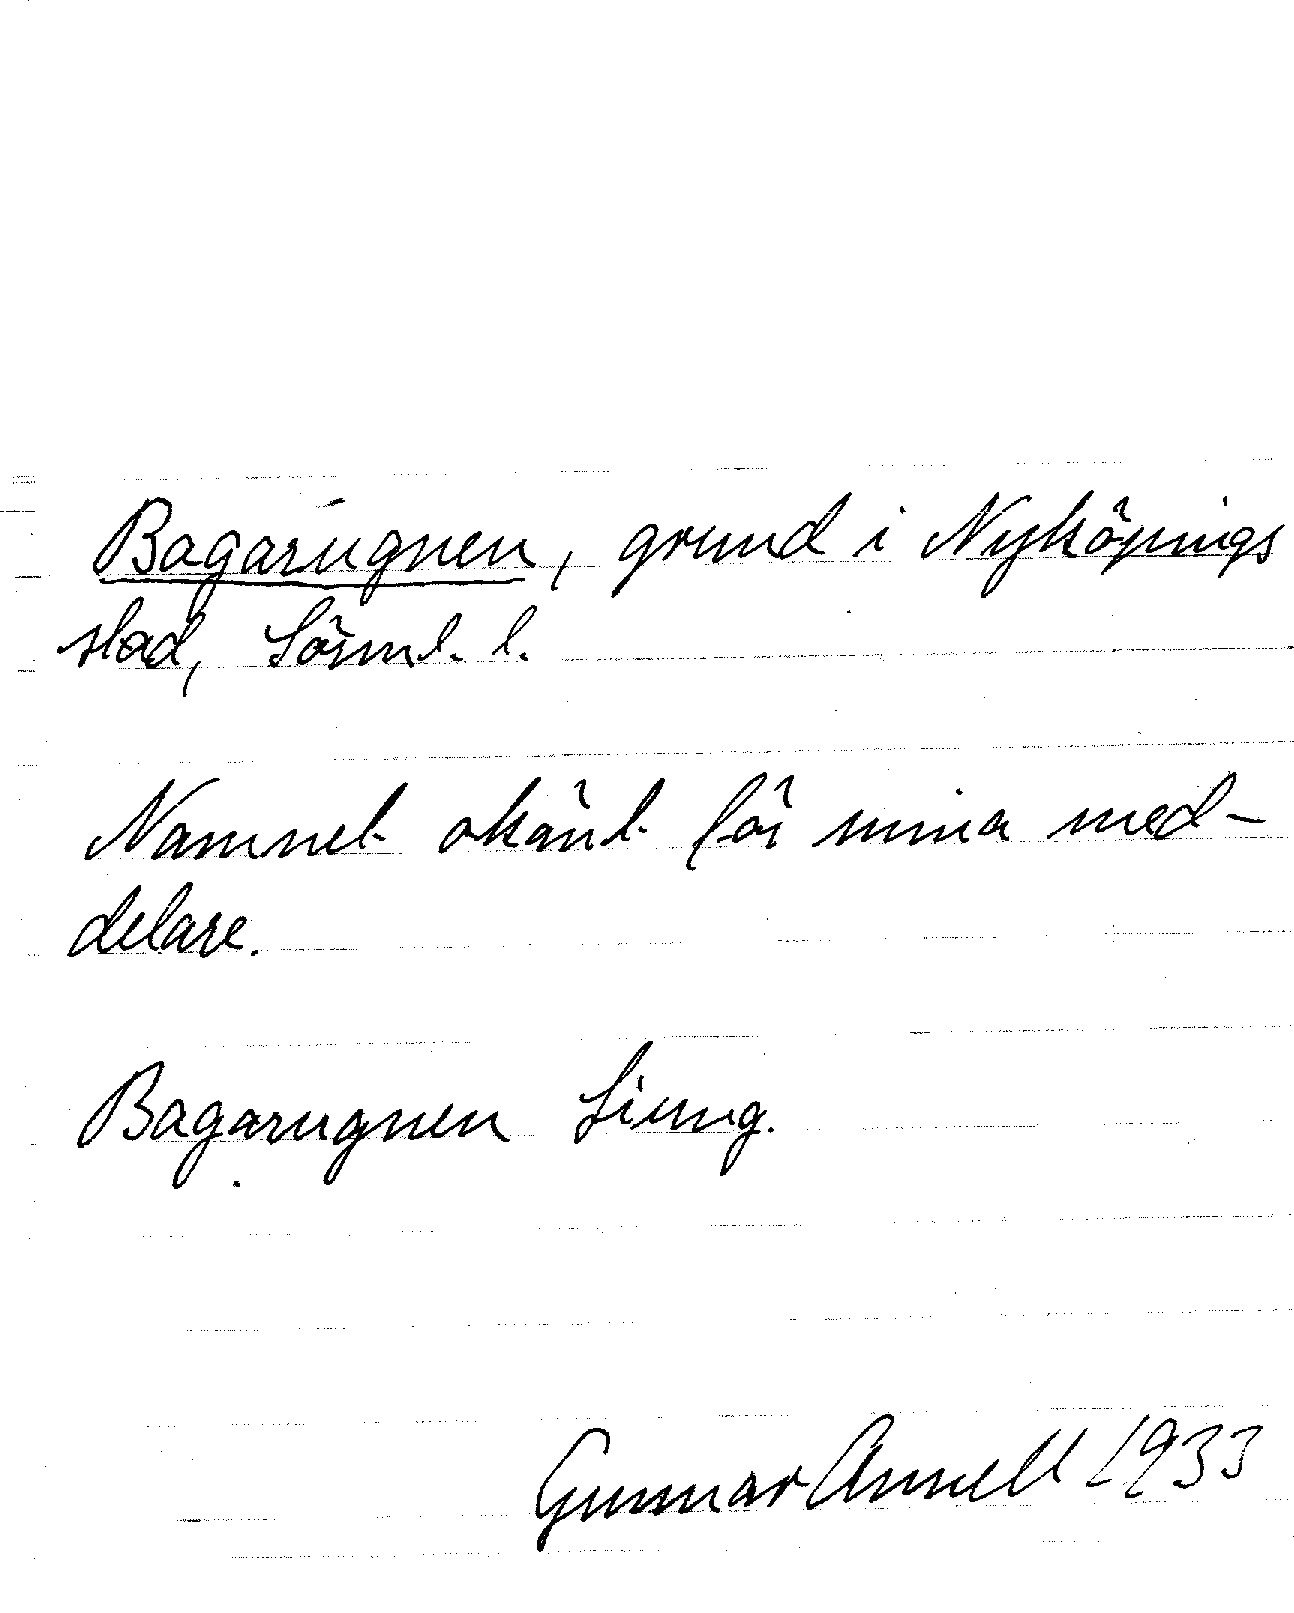 Bagarugnen, grund i Nyköpings
stad, Sörml. l.
Namnet okänt för mina med-
delare.
Bagarugnen
Gunnar Annell 1933